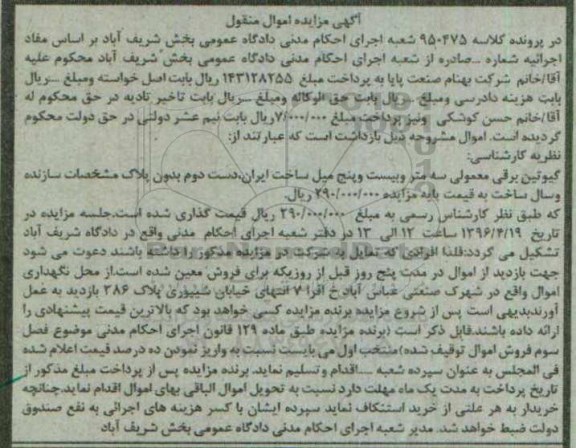 آگهی مزایده اموال منقول
در پرونده کلاسه ۹۵۰۴۷۵ شعبه اجرای احکام مدنی دادگاه عمومی بخش شریف آباد بر اساس مفاد
اجرائیه شماره ــ صادره از شعبه اجرای احکام مدنی دادگاه عمومی بخش شریف آباد محکوم علیه
آقا/خانم شرکت بهنام صنعت پایا به پرداخت مبلغ ۱۴۳۱۲۸۲۵۵ ریال بابت اصل خواسته ومبلغ ـــ ریال
بابت هزینه دادرسی ومبلغ ـــ ریال بابت حق الوکاله ومبلغ ـــ ریال بابت تاخیر تادیه در حق محکوم له
آقا/خانم حسن کوشکی ونیز پرداخت مبلغ ۷/۰۰۰/۰۰۰ریال بابت نیم عشر دولتی در حق دولت محکوم
گردیده است. اموال مشروحه ذیل بازداشت است که عبارتند از:
نظریه کارشناسی:
گیوتین برقی معمولی سه متر وبیست وپنج میل ساخت ایران،دست دوم بدون پلاک مشخصات سازنده
وسال ساخت به قیمت پایه مزایده ۲۹۰/۰۰۰/۰۰۰ ریال.
که طبق نظر کارشناس رسمی به مبلغ ۲۹۰/۰۰۰/۰۰۰ ریال قیمت گذاری شده است.جلسه مزایده در
تاریخ ۱۳۹۶/۴/۱۹ ساعت ۱۲ الی ۱۳ در دفتر شعبه اجرای احکام مدنی واقع در دادگاه شریف آباد
تشکیل می گردد:فلذا افرادی که تمایل به شرکت در مزایده مذکور را داشته باشند دعوت می شود
جهت بازدید از اموال در مدت پنج روز قبل از روزیکه برای فروش معین شده است.از محل نگهداری
اموال واقع در شهرک صنعتی عباس آباد خ افرا ۷ انتهای خیابان شیپوری پلاک ۳۸۶ بازدید به عمل
آورند.بدیهی است پس از شروع مزایده برنده مزایده کسی خواهد بود که بالاترین قیمت پیشنهادی را
ارائه داده باشند.قابل ذکر است (برنده مزایده طبق ماده ۱۲۹ قانون اجرای احکام مدنی موضوع فصل
سوم فروش اموال توقیف شده)منتخب اول می بایست نسبت به واریز نمودن ده درصد قیمت اعلام شده
فی المجلس به عنوان سپرده شعبه ـــ اقدام وتسلیم نماید. برنده مزایده پس از پرداخت مبلغ مذکور از
تاریخ پرداخت به مدت یک ماه مهلت دارد نسبت به تحویل اموال الباقی بهای اموال اقدام نماید.چنانچه
خریدار به هر علتی از خرید استنکاف نماید سپرده ایشان با کسر هزینه های اجرائی به نفع صندوق
دولت ضبط خواهد شد. مدیر شعبه اجرای احکام مدنی دادگاه عمومی بخش شریف آباد